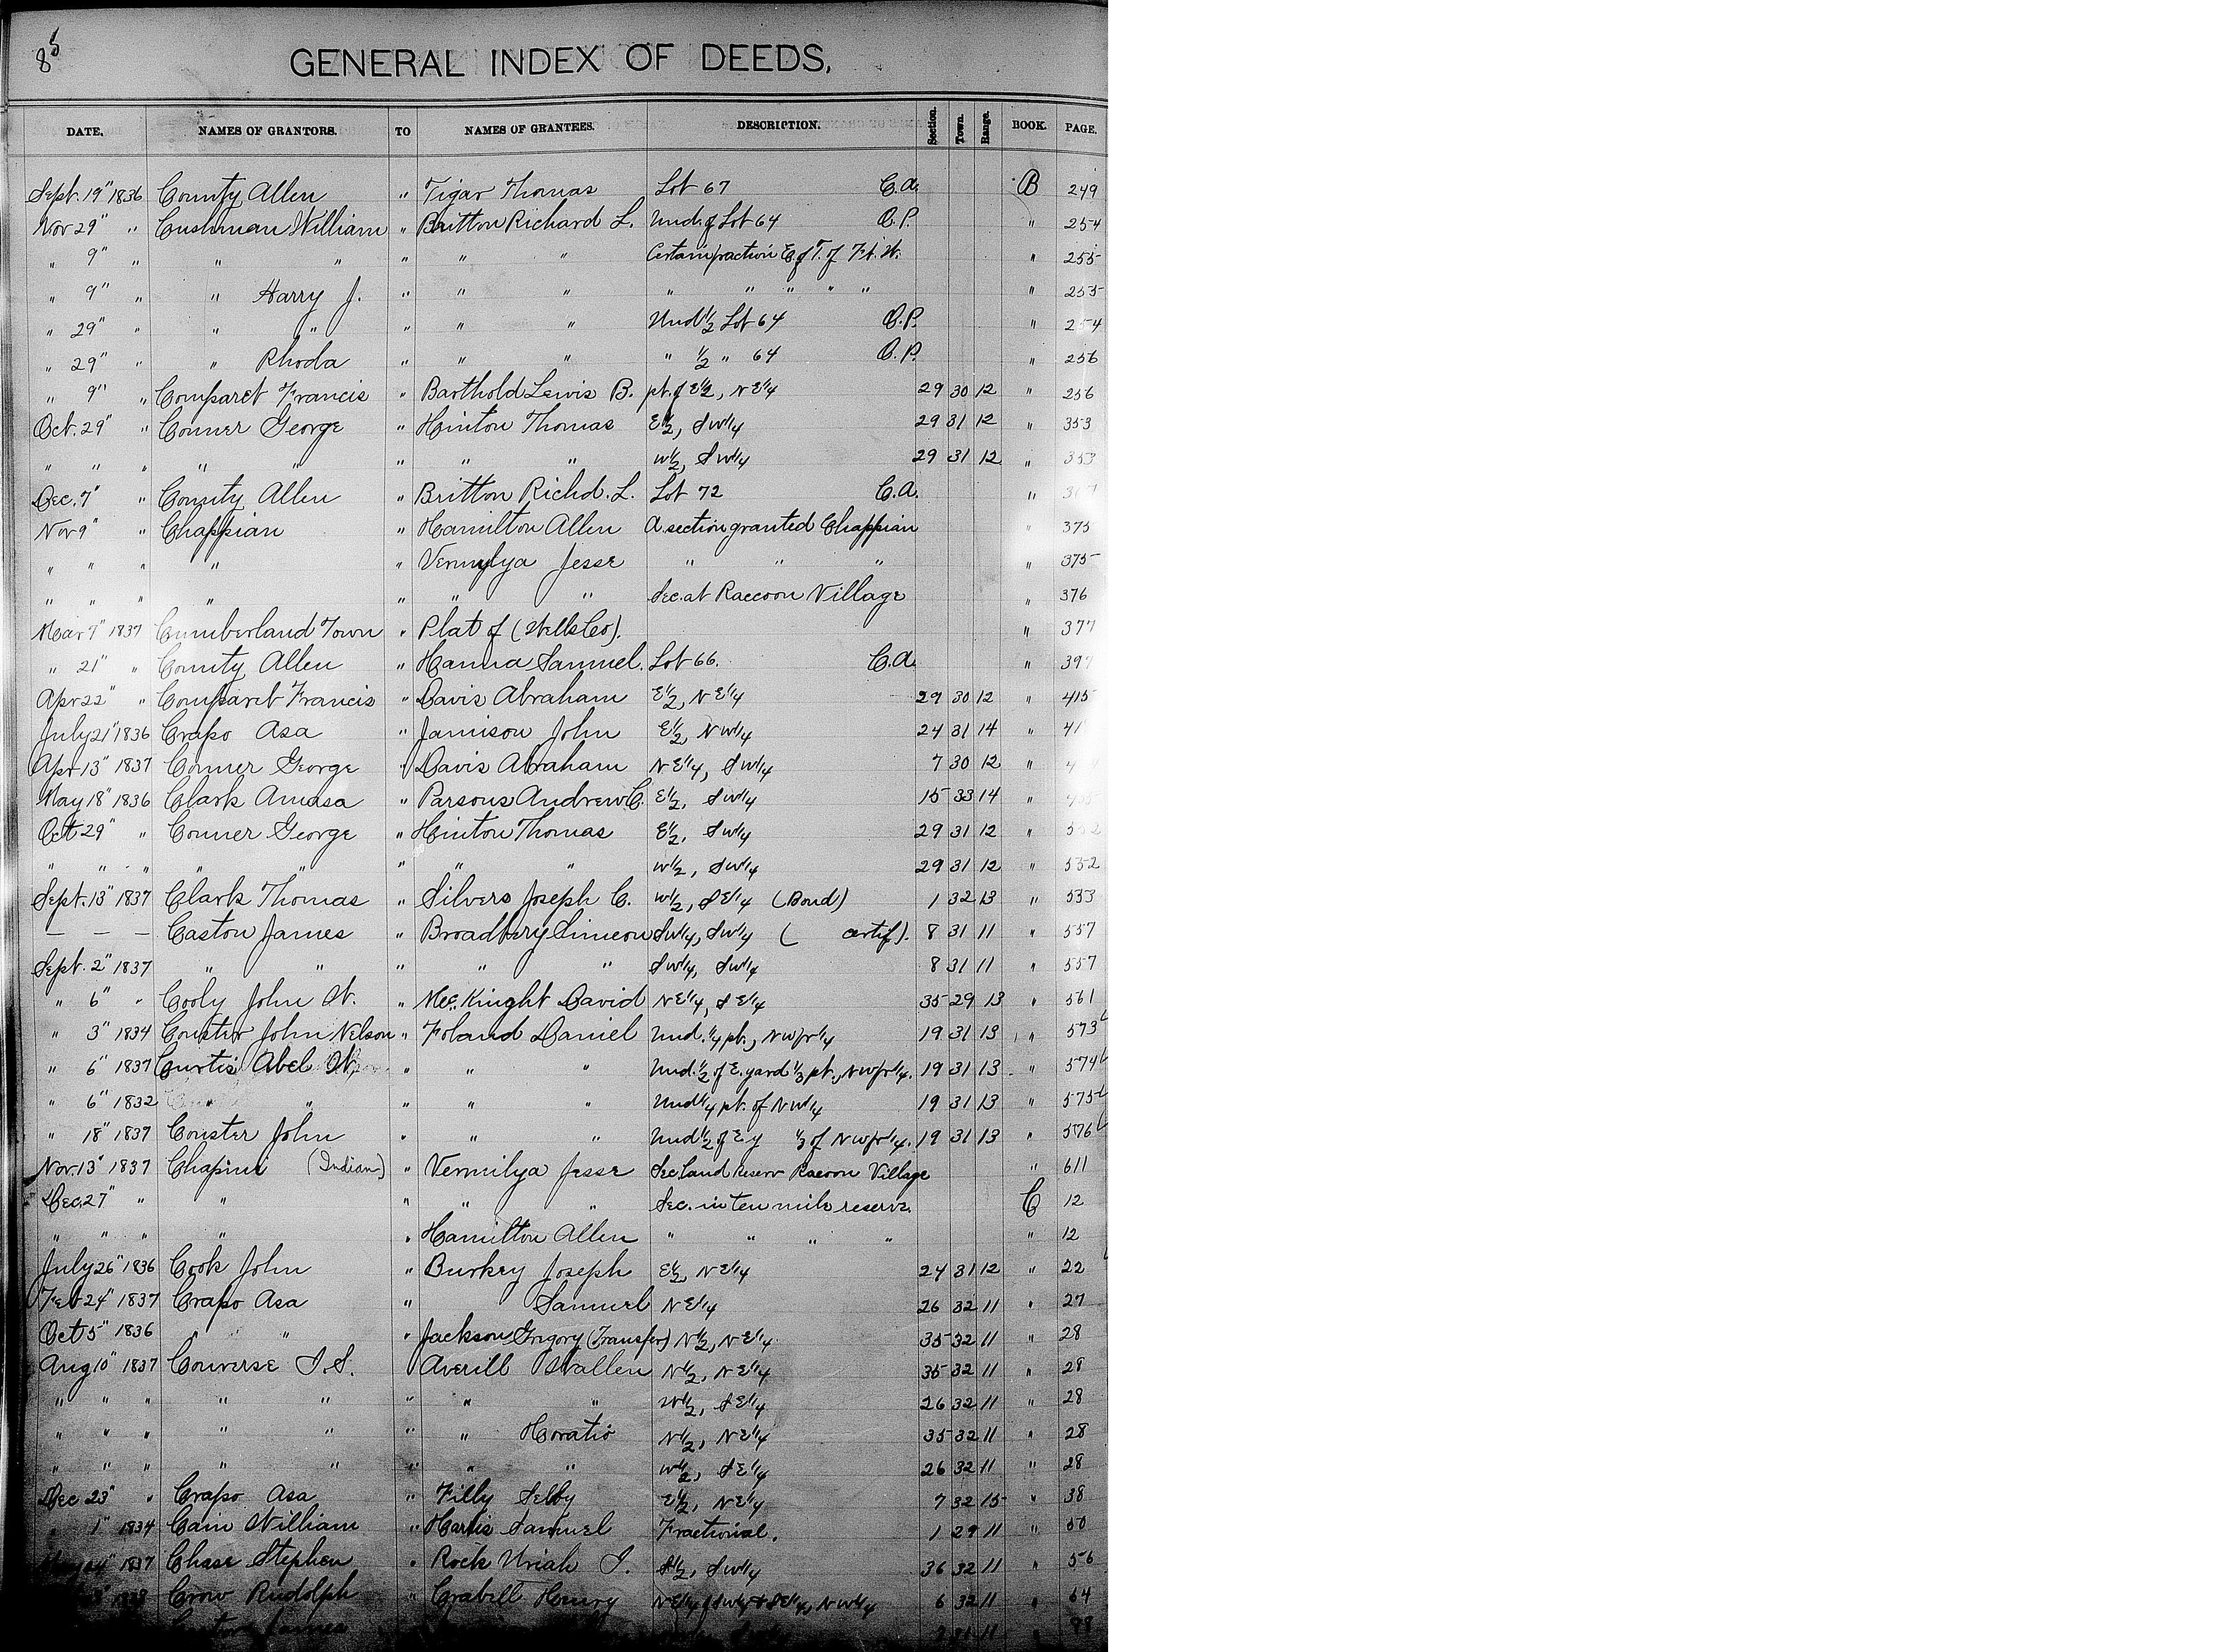 85
GENERAL INDEX OF DEEDS.
DATE. NAMES OF GRANTORS. TO NAMES OF GRANTEES. DESCRIPTION. Section. Town. Range. BOOK. PAGE.
Sept. 19" 1836 County Allen " Tigar Thomas Lot 67 C.A. B 249
Nov 29" " Cushman William " Britton Richard L. Und. of Lot 64 O.P. " 254
" 9" " " " " " " Certain fraction E of T. of Ft. W. " 255
" 9" " " Harry J. " " " " " " " " " 255
" 29" " " " " " " Und 1/2 Lot 64 O.P. " 254
" 29" " " Rhoda " " " " 1/2 " 64 O.P. " 256
" 9" " Comparet Francis " Barthold Lewis B. pt. of E1/2, NE1/4 29 30 12 " 256
Oct. 29" " Conner George " Hinton Thomas E1/2, SW1/4 29 31 12 " 353
" " " " " " " " W1/2, SW1/4 29 31 12 " 353
Dec. 7" " County Allen " Britton Richd. L. Lot 72 C.A. "
Nov 9" " Chappian " Hamilton Allen A section granted Chappian " 375
" " " " " Vermylya Jesse " " " " 375
" " " " " " " Sec. at Raccoon Village " 376
Mar 7" 1837 Cumberland Town " Plat of (Wells Co). " 377
" 21" " County Allen " Hanna Samuel. Lot 66. C.A. " 397
Apr 22" " Comparet Francis " Davis Abraham E1/2, NE1/4 29 30 12 " 415
July 21" 1836 Crapo Asa " Jamison John E1/2, NW1/4 24 31 14 "
Apr. 13" 1837 Conner George " Davis Abraham NE1/4, SW1/4 7 30 12 "
May 18" 1836 Clark Amasa " Parsons Andrew C. E1/2, SW1/4 15 33 14 "
Oct 29" " Conner George " Hinton Thomas E1/2, SW1/4 29 31 12 " 532
" " " " " " " " W1/2, SW1/4 29 31 12 " 532
Sept. 13" 1837 Clark Thomas " Silvers Joseph C. W1/2, SE1/4 (Bond) 1 32 13 " 533
— — — Caston James " Broadbery Simeon SW1/4, SW1/4 ( certif). 8 31 11 " 557
Sept. 2" 1837 " " " " " SW1/4, SW1/4 8 31 11 " 557
" 6" " Cooly John W. " Mc. Kinght David NE1/4, SE1/4 35 29 13 " 561
" 3" 1834 John Nelson " Foland Daniel Und. 1/4 pt., NW fr 1/4 19 31 13 " 573
" 6" 1837 Curtis Abel W. " " " Und. 1/2 of E. yard 1/3 pt., NW fr 1/4. 19 31 13 " 574
" 6" 1832 " " " " " Und 1/4 pt. of NW1/4 19 31 13 " 575
" 18" 1837 Couster John " " " Und 1/2 of E y 1/3 of NW fr 1/4. 19 31 13 " 576
Nov. 13" 1837 Chapine (Indian) " Vermilya Jesse Sec land Reserv Racoon Village " 611
Dec. 27" " " " " " Sec. in ten mile reserve. C 12
" " " " " Hamilton Allen " " " " " 12
July 26" 1836 Cook John " Burkey Joseph E1/2, NE1/4 24 31 12 " 22
Feb 24" 1837 Crapo Asa " Samuel NE1/4 26 32 11 " 27
Oct 5" 1836 " " " Jackson Grigory (Transfer) N1/2, NE1/4 35 32 11 " 28
Aug 10" 1837 Converse I. S. " Averill Wallen N1/2, NE1/4 35 32 11 " 28
" " " " " " " " W1/2, SE1/4 26 32 11 " 28
" " " " " " " Horatio N1/2, NE1/4 35 32 11 " 28
" " " " " " " " W1/2, SE1/4 26 32 11 " 28
Dec 23" " Crapo Asa " Filly Selby E1/2, NE1/4 7 32 15 " 38
" 1" 1834 Cain William " Samuel Fractional. 1 29 11 " 50
1837 Chase Stephen " Rock Uriah I. S1/2, SW1/4 36 32 11 " 56
Crow Rudolph " Crabill Henry NE1/4 of SW1/4 & SE1/4, NW1/4 6 32 11 " 64